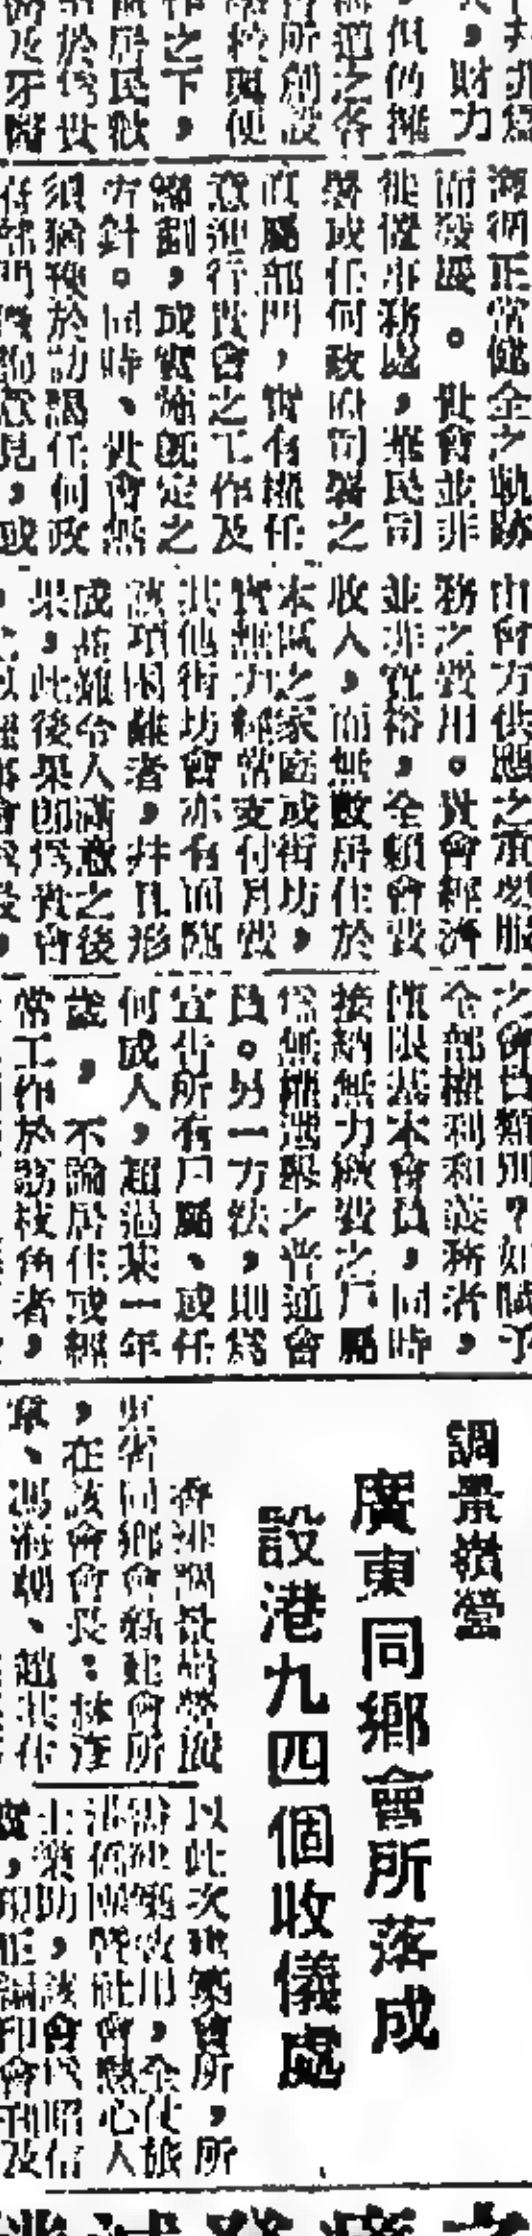 財力
，但仍擁
道之各
所創設
之下，
居民
牙醫
正常健全之軌跡
而發展。貴會並非
徙置事務處，華民司
署或任何政府司署之
直屬部門，實有權任
意進行貴會之工作及
籌劃，或實施既定之
方針。同時、貴會無
須猶豫於訪謁任何政
意見，或
由會方供應之
務之費用。貴會經濟
並非寬裕，全賴會費
收入，而無數居住於
本區之家庭或街坊，
實無力經常支付月費
其他街坊會亦有面臨
該項困難者，并且形
成甚難令人滿意之後
果，此後果即為貴會
之會員類別？如賦予
全部權利和義務者，
僅限基本會員，同時
接納無力繳費之戶屬
為無權選舉之普通會
員。另一方法，則為
宣告所有戶屬、或任
何成人，超過某一年
歲，不論居住或經
常工作於荔枝角者，
調景嶺營
廣東同鄉會所落成
設港九四個收儀處
香港調景嶺營廣
東省同鄉會新建會所
，在該會會長：林
章、馮海潮、趙其作
以此次建築會所，所
需建築費用，全仗旅
港僑團暨社會熱心人
士樂助，該會為昭信
，現正編印會刊及